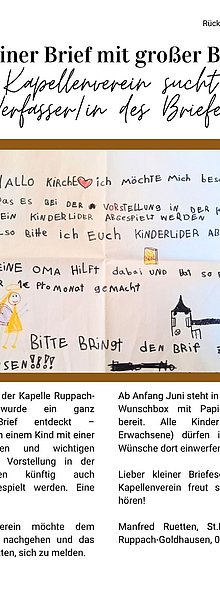 Rück
iner Brief mit großer B
Kapellenverein sucht
erfasser/in des Briefe
HALLO KiRcHE ich möcHTE Mich besc
Das ES BEI DER VORSTELLUNG iN DER K
EiN KiNDERLiDER ABGESPiELT WERDEN
ALso BiTTE ich EUch KiNDERLiDER AB
EiNE OMA HiLFT dabei UND Hat so
1€ Pro Monat gemacht
BiTTE BRiNgT dEN BRiF
SEN!!!!
der Kapelle Ruppach-
wurde ein ganz
Brief entdeckt –
n einem Kind mit einer
en und wichtigen
Vorstellung in der
en künftig auch
espielt werden. Eine
erein möchte dem
nachgehen und das
tten, sich zu melden.
Ab Anfang Juni steht in
Wunschbox mit Papi
bereit. Alle Kinder
Erwachsene) dürfen i
Wünsche dort einwerfen
Lieber kleiner Briefesc
Kapellenverein freut s
hören!
Manfred Ruetten, St.
Ruppach-Goldhausen, 0